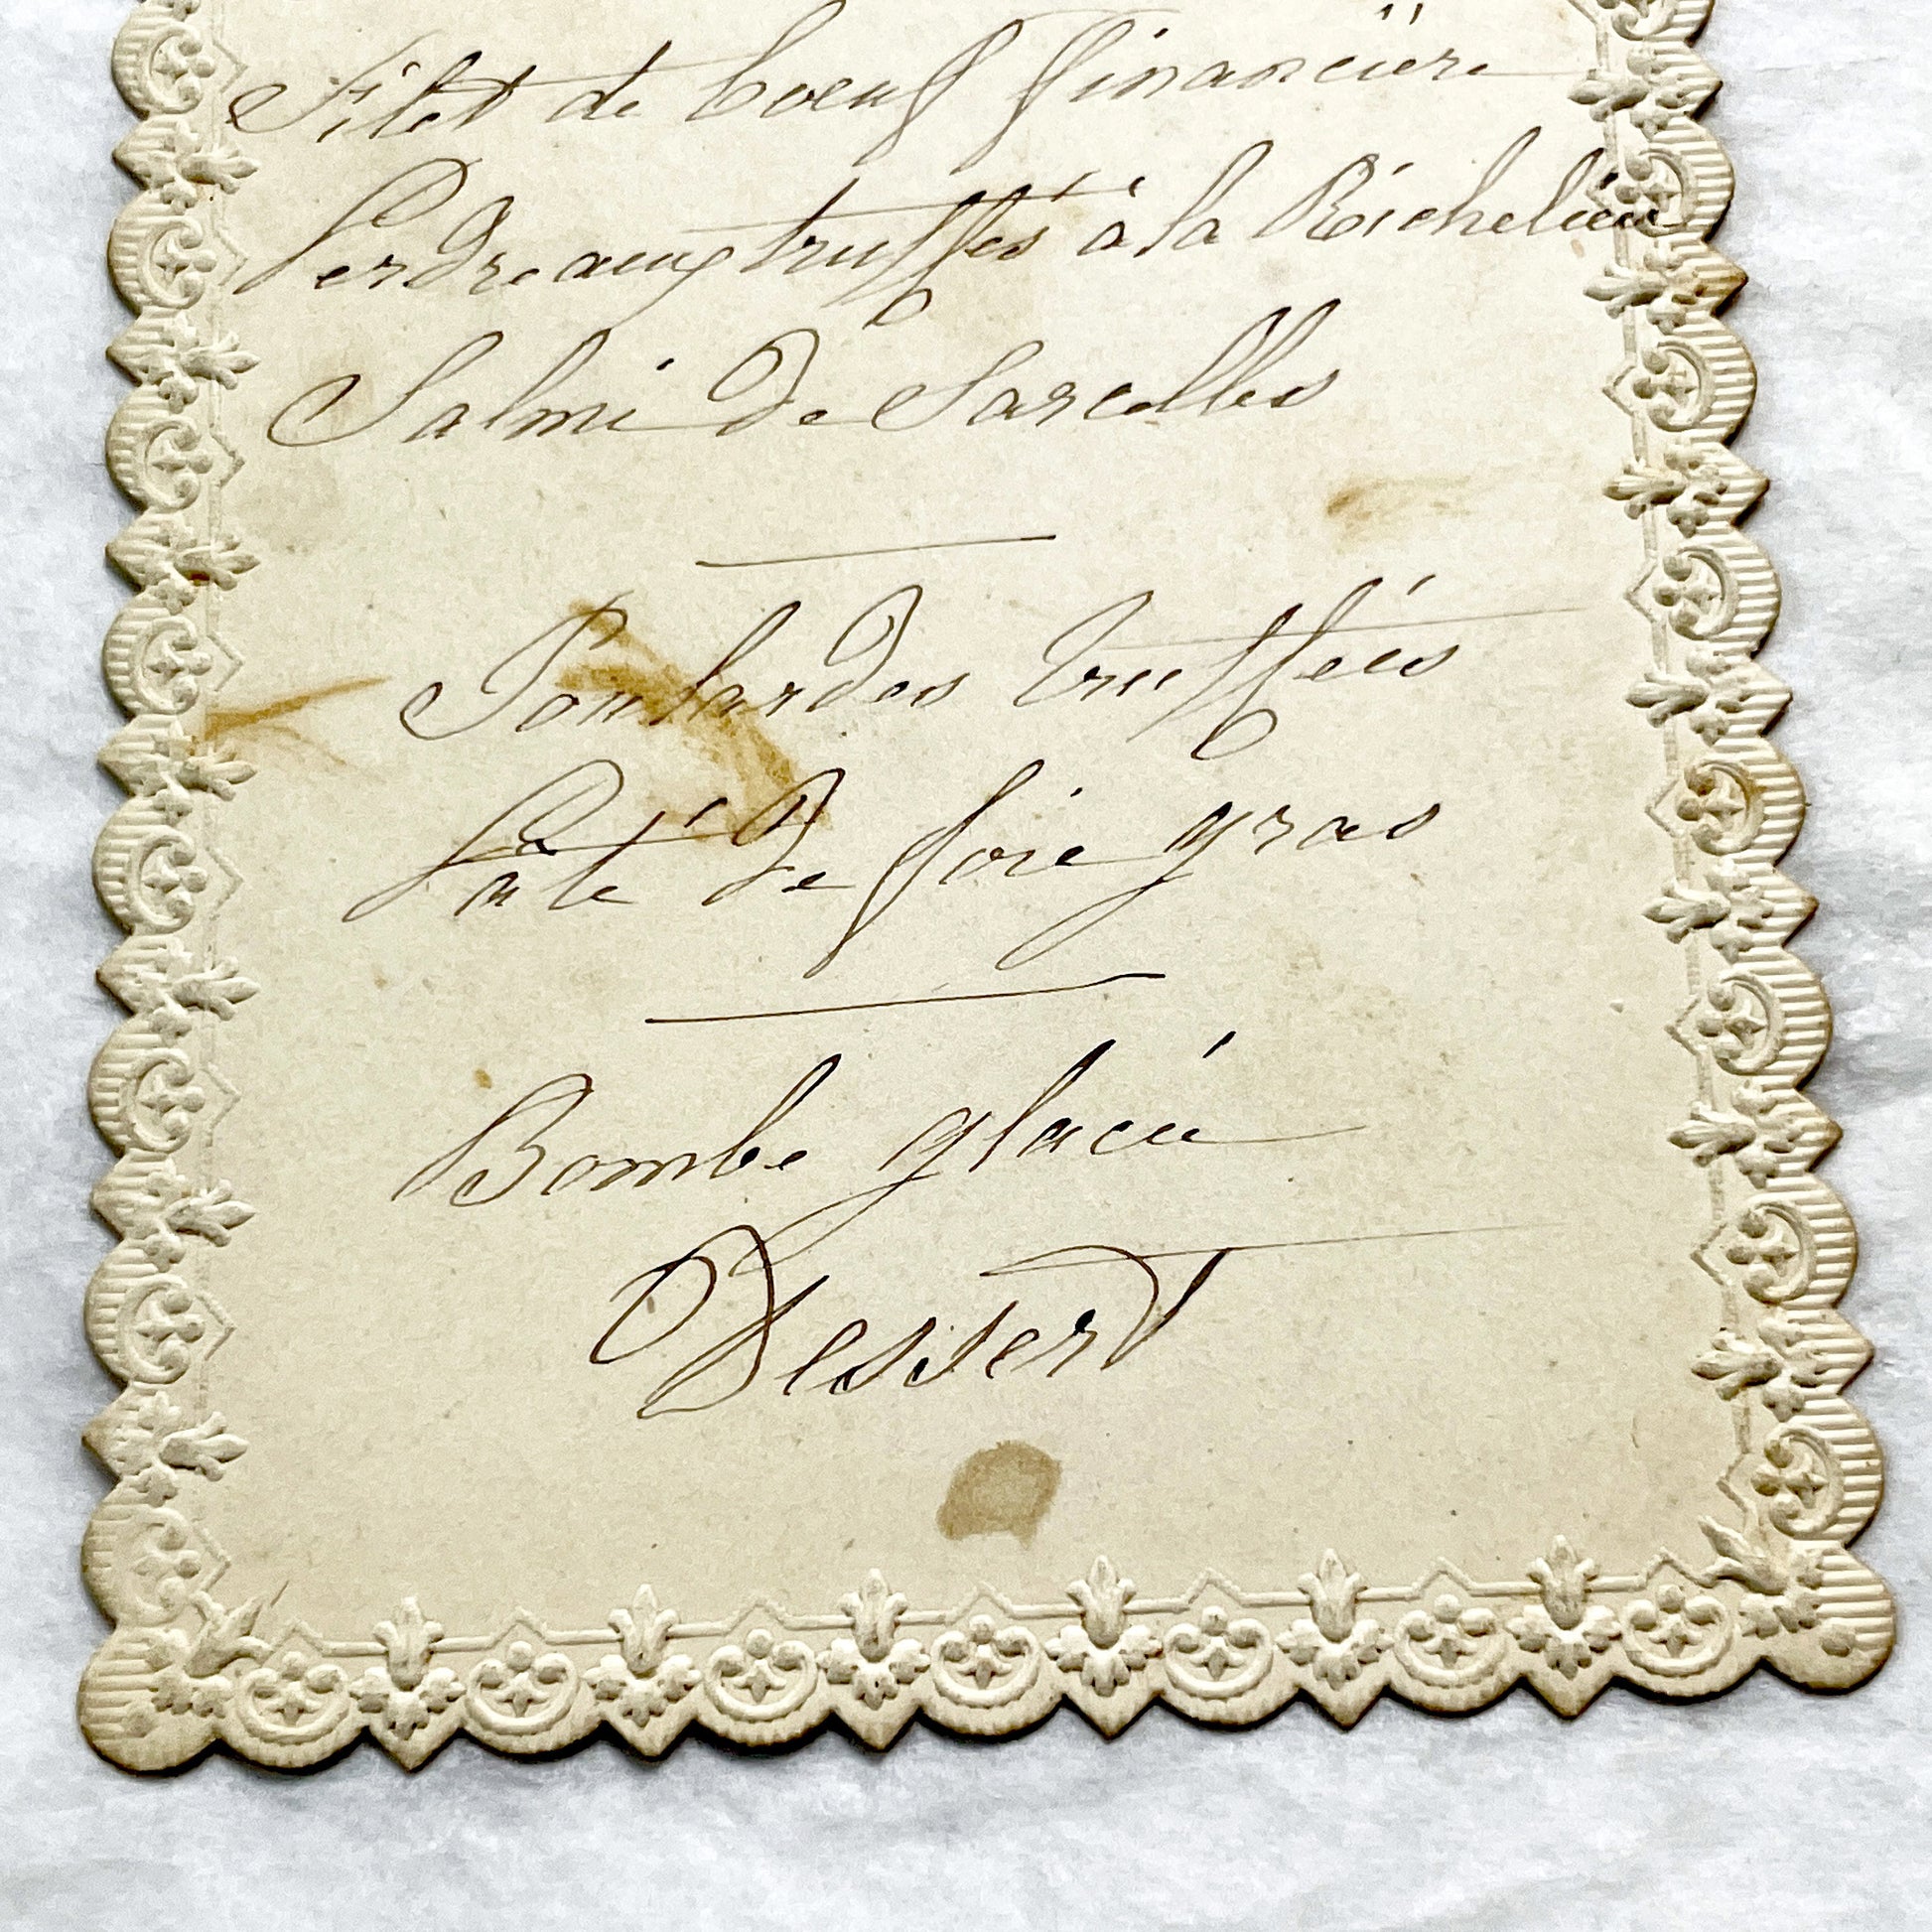 Filet de boeuf financière
Perdreaux truffés à la Richelieu
Salmi de Sarcelles
Poulardes truffées
Pâté de foie gras
Bombe glacée
Dessert